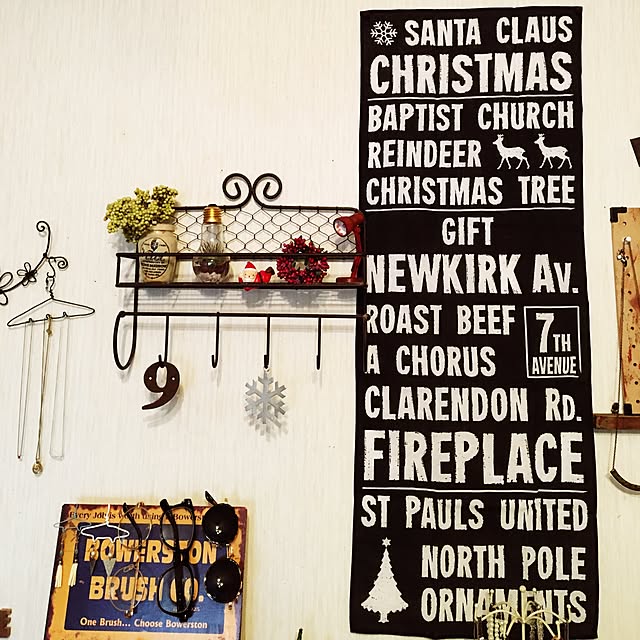 SANTA CLAUS
CHRISTMAS
BAPTIST CHURCH
REINDEER
CHRISTMAS TREE
GIFT
NEWKIRK Av.
ROAST BEEF
7TH
AVENUE
A CHORUS
CLARENDON RD.
FIREPLACE
ST PAULS UNITED
NORTH POLE
ORNAMENTS
9
Every Job is Worth using a Bowers
BOWERSTON
BRUSH CO.
One Brush... Choose Bowerston